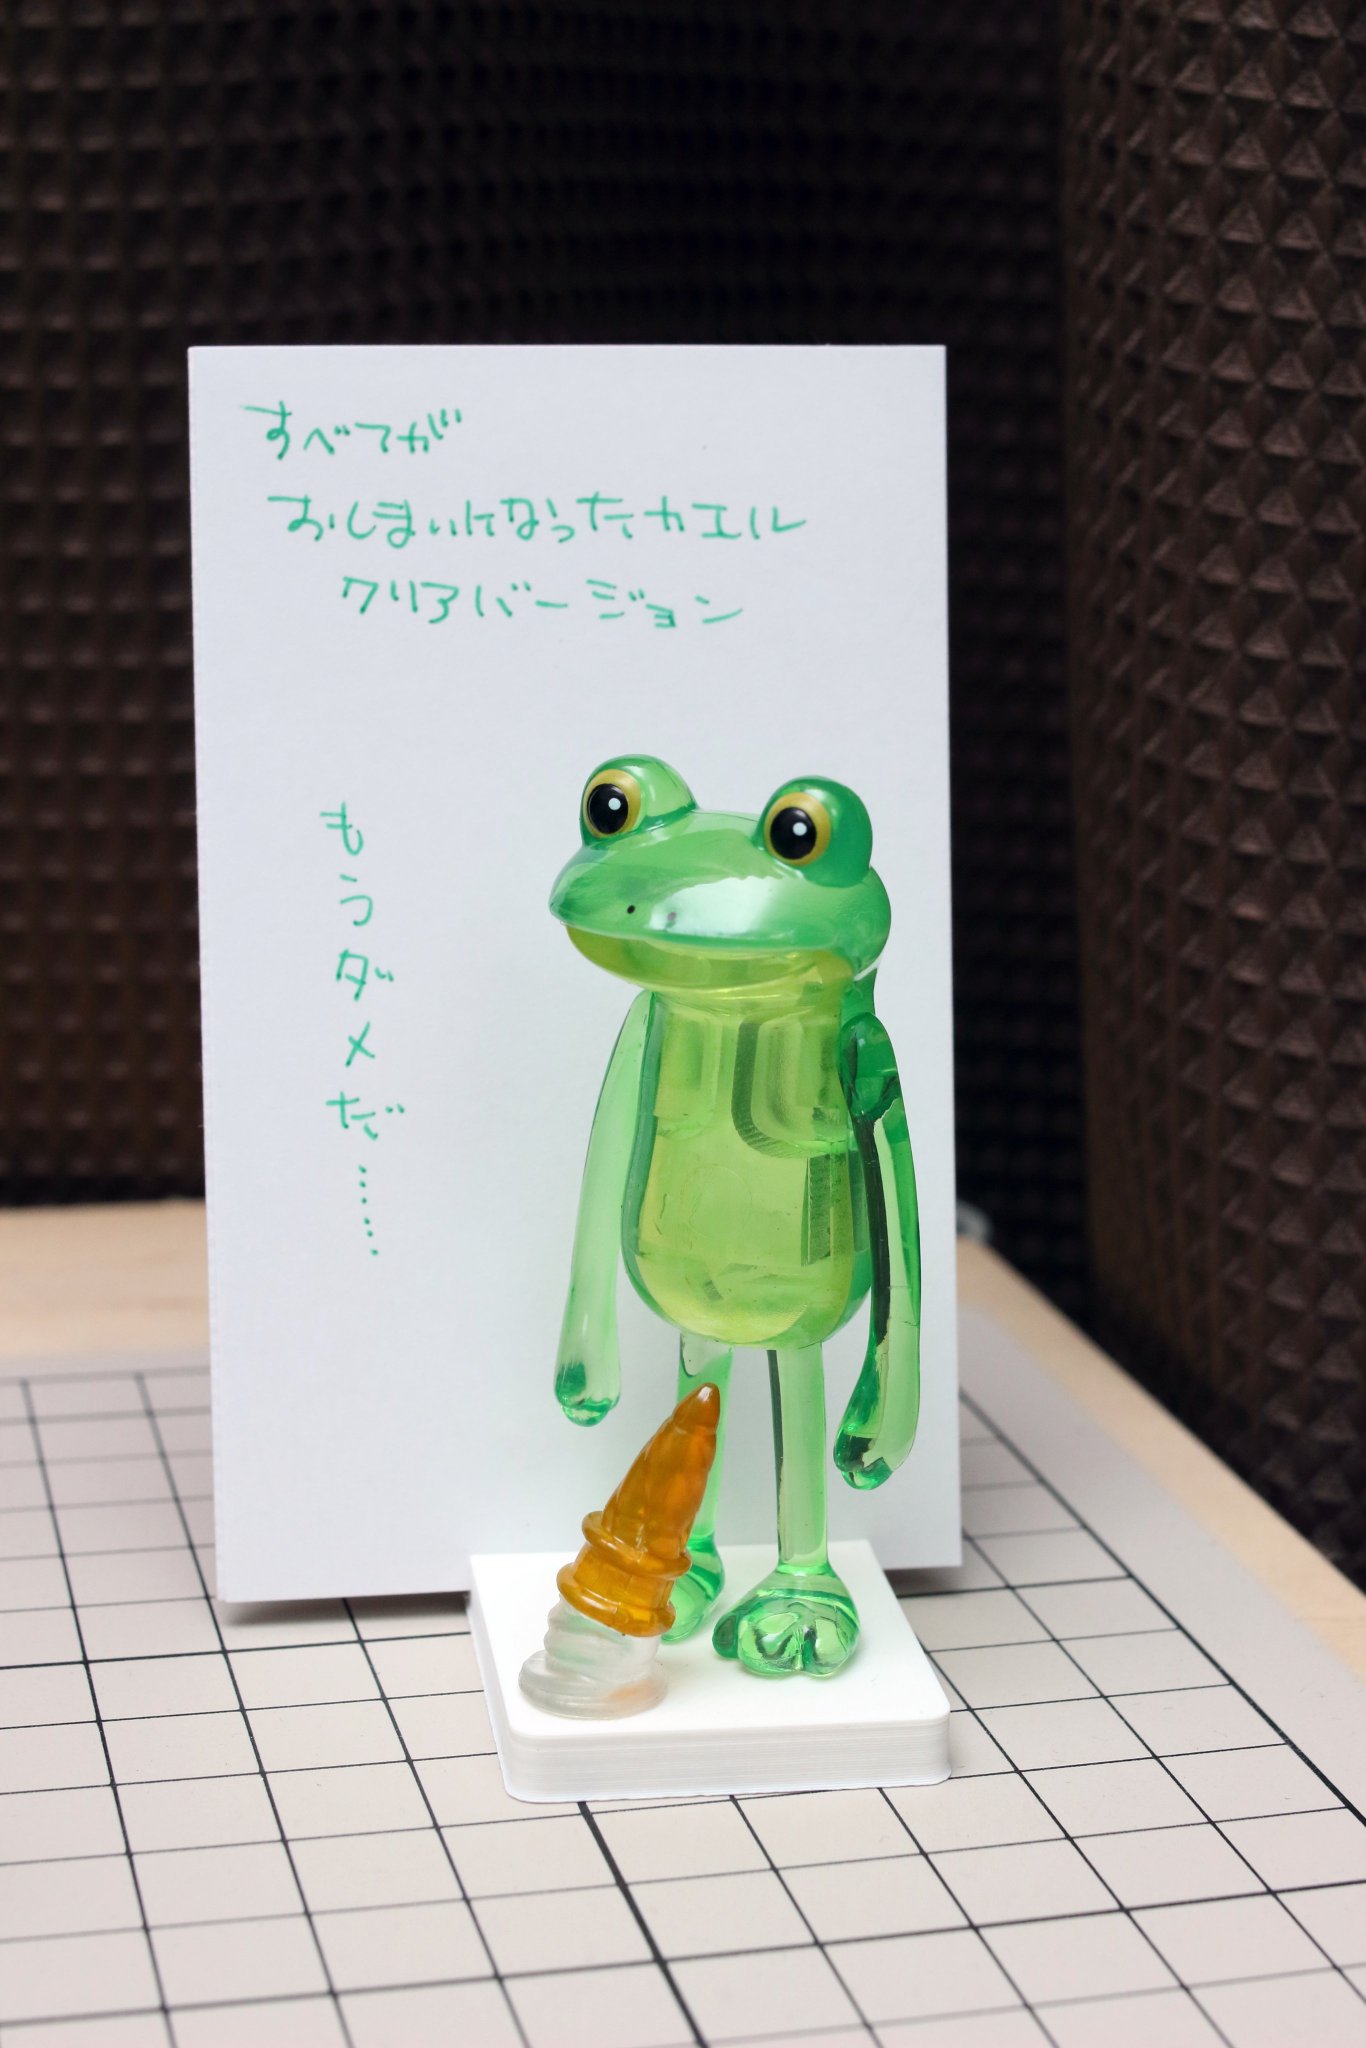 すべてが
おしまいになったカエル
クリアバージョン
もうダメだ……